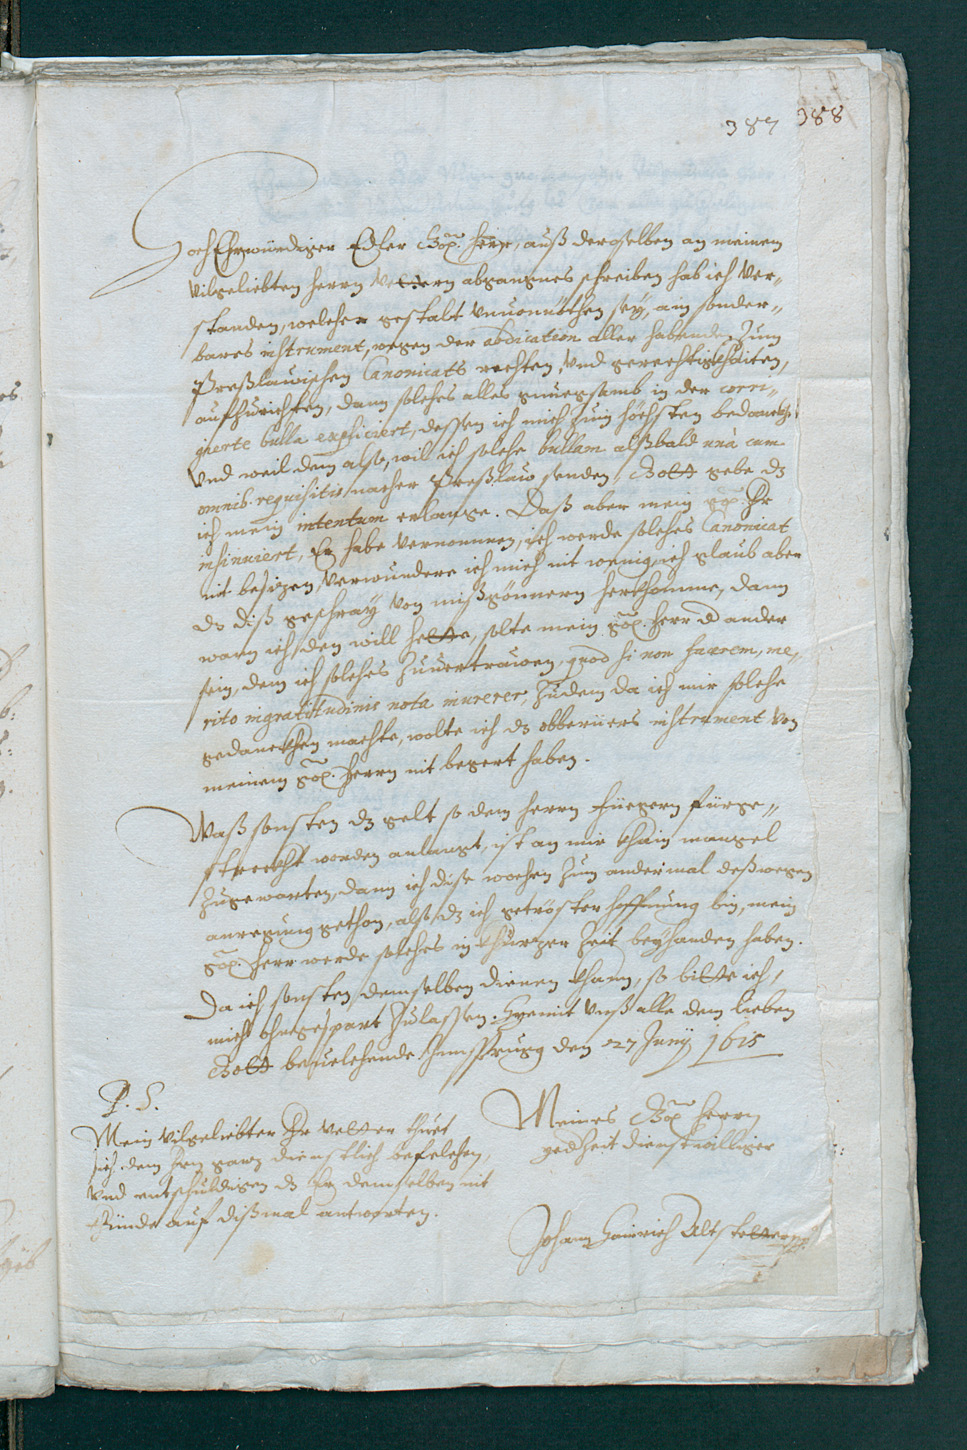 387 388
HochEhrwürdiger Edler Gön. herr, auß deroselben an meinem
vilgeliebten herrn Vettern abgangnes schreiben hab ich ver„
standen, welcher gestalt unuonnöthen sey, ain sonder„
bares instrument, wegen der abdication aller habenden zum
Preßlauischen Canonicats rechten, und gerechtigkhaiten,
aufzurichten, dann solches alles gnuegsamb in der corri„
gierte bulla expliciert, dessen ich mich zum höchsten bedanckhe,
Und weil dem also, will ich solche bullam alßbald unà cum
omnib. requisitis nacher Preßlaw senden, Gott gebe dz
ich mein intentum erlange. Daß aber mein gön. Hr
insinuiert, Er habe vernommen, ich werde solches Canonicat
nit besizen, verwundere ich mich nit wenig, ich glaub aber
dz diß geschray von mißgönnern herkhomme, dann
wann ich den will hette, solte mein gön. herr d ander
sein, dem ich solches zuuertrauen, quod si non facerem, me„
rito ingratitudinis nota inurerer, zudem da ich mir solche
gedanckhen machte, wolte ich dz obberüers instrument von
meinem gön. herrn nit begert haben.
Waß sonsten dz gelt so dem herrn Füegern fürge„
streckht worden anlangt, ist an mir khain mangel
zugewarten, dann ich dise wochen zum andermal deßwegen
anregung gethon, also dz ich getröster hoffnung bin, mein
gön. herr werde solches in khurzer zeit beyhanden haben.
Da ich sonsten demselben dienen khann, so bitte ich,
mich ohngespart zulassen. Hyemit unß alle dem lieben
Gott beuelchende Ynnsprugg den 27 Junij 1615
P. S.
Mein vilgeliebter Hr Vetter thuet
sich dem hrn ganz dienstlich befelchen,
und entschuldigen dz Er demselben nit
künde auf dißmal antworten.
Meines Gön. Herrn
yedZeit dienstwilliger
Johann Hainrich Altstetter